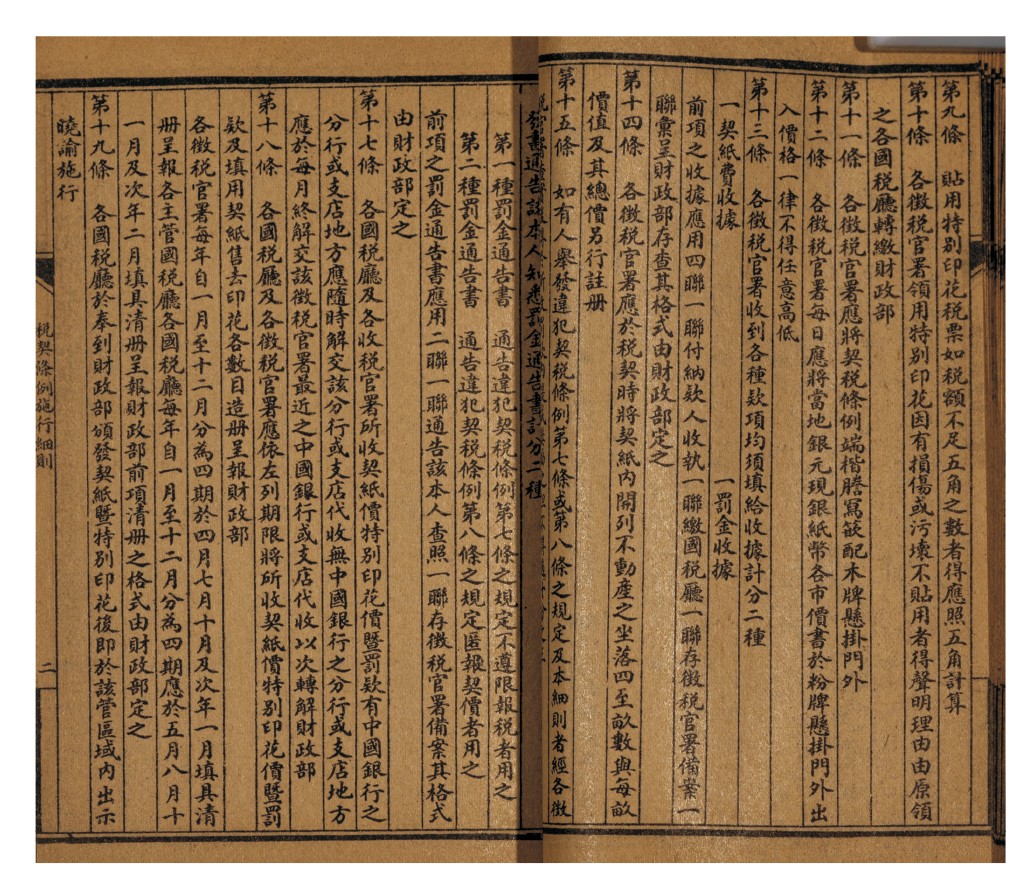 第九條　貼用特別印花稅票如稅額不足五角之數者得應照五角計算
第十條　各徵稅官署領用特別印花因有損傷或污壞不貼用者得聲明理由由原領
之各國稅廳轉繳財政部
第十一條　各徵稅官署應將契稅條例端楷謄寫簽配木牌懸掛門外
第十二條　各徵稅官署每日應將當地銀元現銀紙幣各市價書於粉牌懸掛門外出
入價格一律不得任意高低
第十三條　各徵稅官署收到各種欵項均須填給收據計分二種
一契紙費收據　一罰金收據
前項之收據應用四聯一聯付納欵人收執一聯繳國稅廳一聯存徵稅官署備案一
聯彙呈財政部存查其格式由財政部定之
第十四條　各徵稅官署應於稅契時將契紙內開列不動產之坐落四至畝數與每畝
價值及其總價另行註册
第十五條　如有人舉發違犯契稅條例第七條或第八條之規定及本細則者經各徵
發書通告該本人知悉罰金通告書計分二種
第一種罰金通告書　通告違犯契稅條例第七條之規定不遵限報稅者用之
第二種罰金通告書　通告違犯契稅條例第八條之規定匿報契價者用之
前項之罰金通告書應用二聯一聯通告該本人查照一聯存徵稅官署備案其格式
由財政部定之
第十七條　各國稅廳及各收稅官署所收契紙價特別印花價暨罰欵有中國銀行之
分行或支店地方應隨時解交該分行或支店代收無中國銀行之分行或支店地方
應於每月終解交該徵稅官署最近之中國銀行或支店代收以次轉解財政部
第十八條　各國稅廳及各徵稅官署應依左列期限將所收契紙價特別印花價暨罰
欵及填用契紙售去印花各數目造册呈報財政部
各徵稅官署每年自一月至十二月分為四期於四月七月十月及次年一月填具清
册呈報各主管國稅廳各國稅廳每年自一月至十二月分為四期應於五月八月十
一月及次年二月填具清册呈報財政部前項清册之格式由財政部定之
第十九條　各國稅廳於奉到財政部頒發契紙暨特別印花後即於該管區域內出示
曉諭施行
稅契條例施行細則
二